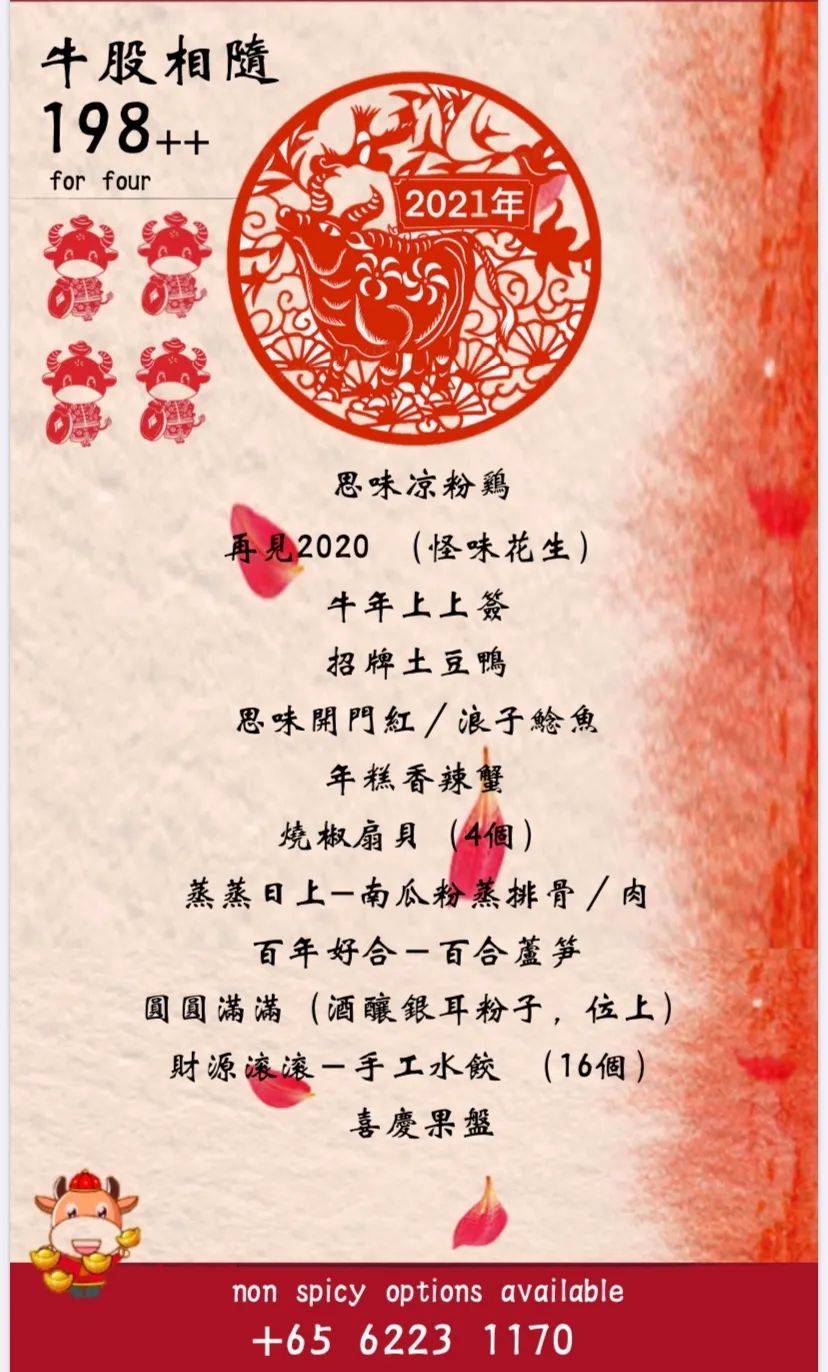 牛股相隨
198++
for four
2021年
思味凉粉鷄
再見2020 （怪味花生）
牛年上上簽
招牌土豆鴨
思味開門紅／浪子鯰魚
年糕香辣蟹
燒椒扇貝（4個）
蒸蒸日上－南瓜粉蒸排骨／肉
百年好合－百合蘆笋
圓圓滿滿（酒釀銀耳粉子，位上）
財源滚滚－手工水餃 （16個）
喜慶果盤
non spicy options available
+65 6223 1170